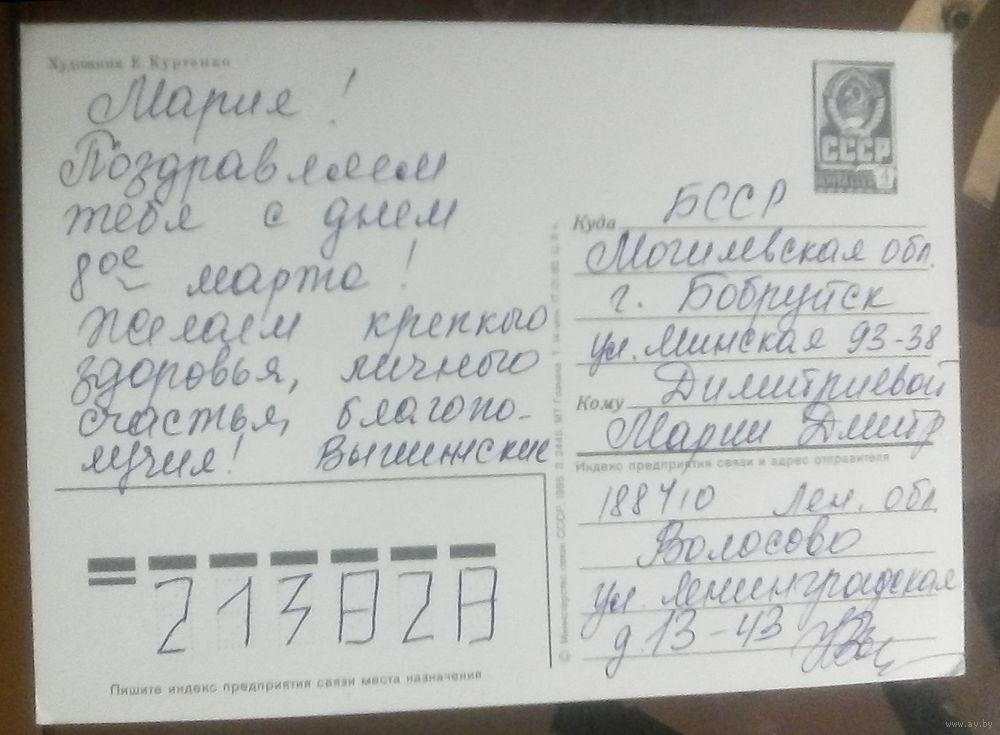 Художник Е. Куртенко
Мария!
Поздравляем
тебя с днем
8ое марта!
Желаем крепкого
здоровья, личного
счастья, благопо-
лучия! Вышинские
СССР
4
Куда БССР
Могилевская обл.
г. Бобруйск
ул. Минская 93-38
Димитриевой
Кому
Марии Дмитр
Индекс предприятия связи и адрес отправителя
188410 Лен. обл
Волосово
ул. Ленинградская
д. 13-43
213828
Пишите индекс предприятия связи места назначения
© Министерство связи СССР. 1985.
www.ay.by